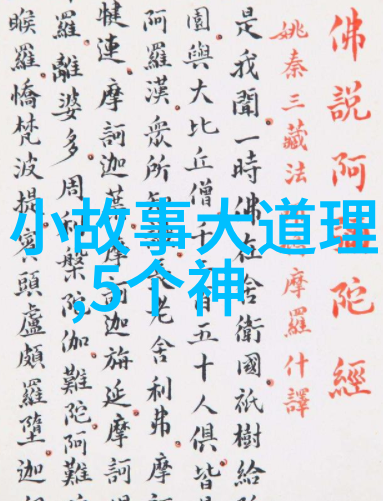 小故事大道理
,5个神
佛說阿彌陀經
姚秦三藏法摩羅什譯
是我聞一時佛在舍衛國祇樹給
園與大比丘僧千二百五十人俱皆
阿羅漢眾所長老舍利弗摩
犍連摩訶迦葉摩訶迦旃延摩訶
羅離婆多周利槃陀伽難陀阿難
睺羅憍梵波提賓頭盧頗羅墮迦